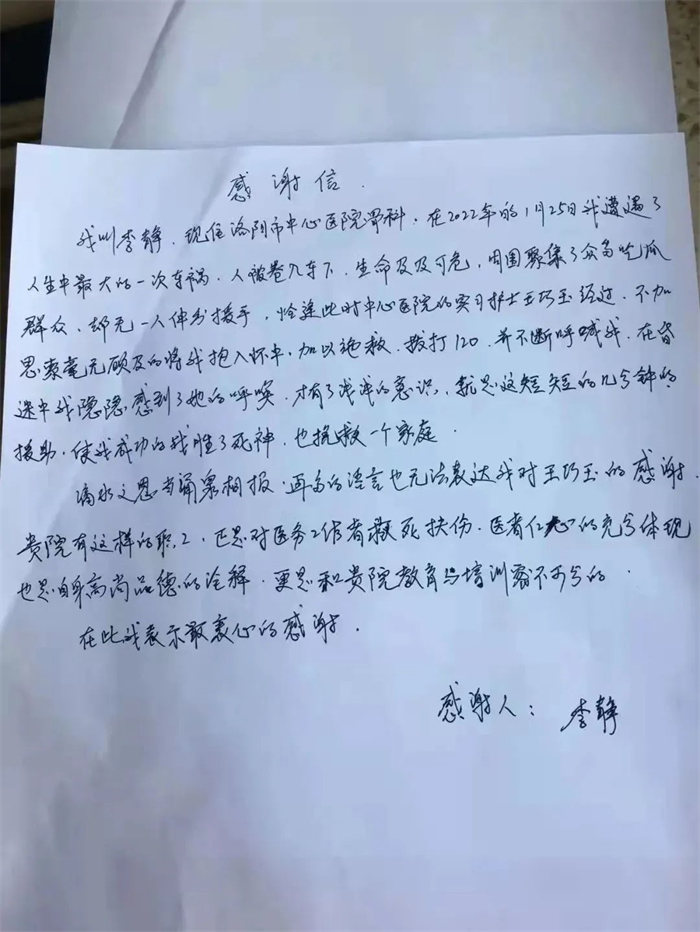 感谢信.
我叫李静.现住洛阳市中心医院骨科.在2022年的1月25日我遭遇了
人生中最大的一次车祸.人被卷入车下.生命及及可危,周围聚集了众多吃瓜
群众,却无一人伸出援手,恰逢此时中心医院的实习护士王巧玉经过.不加
思索毫无顾及的将我抱入怀中.加以施救.拨打120.并不断呼喊我.在昏
迷中我隐隐感到了她的呼唤.才有了浅浅的意识,就是这短短的几分钟的
援助.使我成功的战胜了死神,也挽救一个家庭.
滴水之恩当涌泉相报.再多的语言也无法表达我对王巧玉的感谢.
贵院有这样的职工,正是对医务工作者救死扶伤.医者仁心的充分体现
也是自身高尚品德的诠释.更是和贵院教育与培训密不可分的.
在此我表示最衷心的感谢.
感谢人:李静